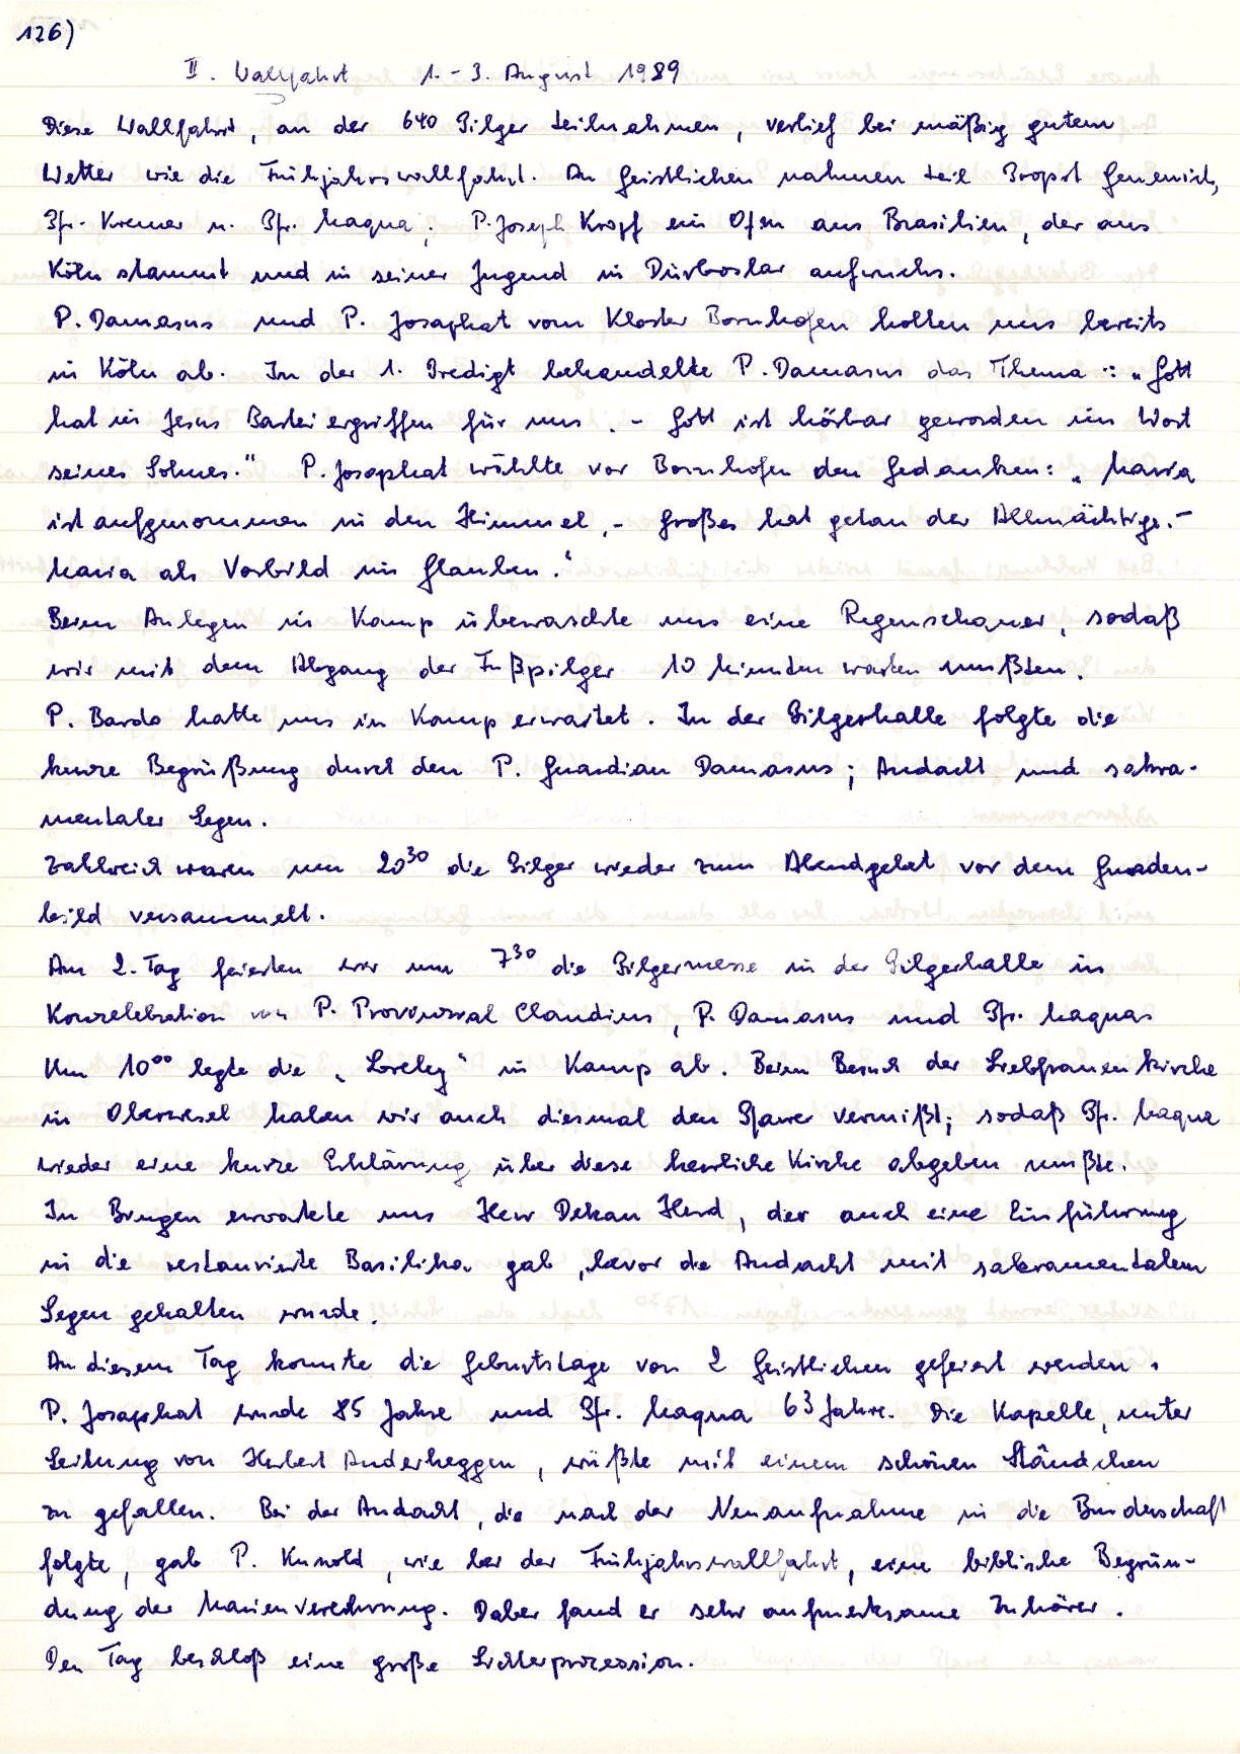 126)
II. Wallfahrt 1. - 3. August 1989
Diese Wallfahrt, an der 640 Pilger teilnahmen, verlief bei mäßig gutem
Wetter wie die Frühjahrswallfahrt. An Geistlichen nahmen teil Propst
Pfr. Kremer u. Pfr. Maqua; P. Joseph Kropf ein Ofm aus Brasilien, der aus
Köln stammt und in seiner Jugend in Dürboslar aufwuchs.
P. Damasus und P. Josaphat vom Kloster Bornhofen holten uns bereits
in Köln ab. In der 1. Predigt behandelte P. Damasus das Thema: "Gott
hat in Jesus Partei ergriffen für uns. - Gott ist hörbar geworden im Wort
seines Sohnes." P. Josaphat wählte vor Bornhofen den Gedanken: "Maria
ist aufgenommen in den Himmel, - Großes hat getan der Allmächtige. -
Maria als Vorbild im Glauben."
Beim Anlegen in Kamp überraschte uns eine Regenschauer, sodaß
wir mit dem Abgang der Fußpilger 10 Minuten warten mußten.
P. Bardo hatte uns in Kamp erwartet. In der Pilgerhalle folgte die
kurze Begrüßung durch den P. Guardian Damasus; Andacht und sakra-
mentaler Segen.
Zahlreich waren um 20³⁰ die Pilger wieder zum Abendgebet vor dem Gnaden-
bild versammelt.
Am 2. Tag feierten wir um 7³⁰ die Pilgermesse in der Pilgerhalle in
Konzelebration von P. Provinzial Claudius, P. Damasus und Pfr. Maqua.
Um 10⁰⁰ legte die "Loreley" in Kamp ab. Beim Besuch der Liebfrauenkirche
in Oberwesel haben wir auch diesmal den Pfarrer vermißt; sodaß Pfr. Maqua
wieder eine kurze Erklärung über diese herrliche Kirche abgeben mußte.
In Bingen erwartete uns Herr Dekan Herd, der auch eine Einführung
in die restaurierte Basilika gab, bevor die Andacht mit sakramentalem
Segen gehalten wurde.
An diesem Tag konnte die Geburtstage von 2 Geistlichen gefeiert werden.
P. Josaphat wurde 85 Jahre und Pfr. Maqua 63 Jahre. Die Kapelle, unter
Leitung von Herbert Anderheggen, wußte mit einem schönen Ständchen
zu gefallen. Bei der Andacht, die nach der Neuaufnahme in die Bruderschaft
folgte, gab P. Kunold, wie bei der Frühjahrswallfahrt, eine biblische Begrün-
dung der Marienverehrung. Dabei fand er sehr aufmerksame Zuhörer.
Den Tag beschloß eine große Lichterprozession.